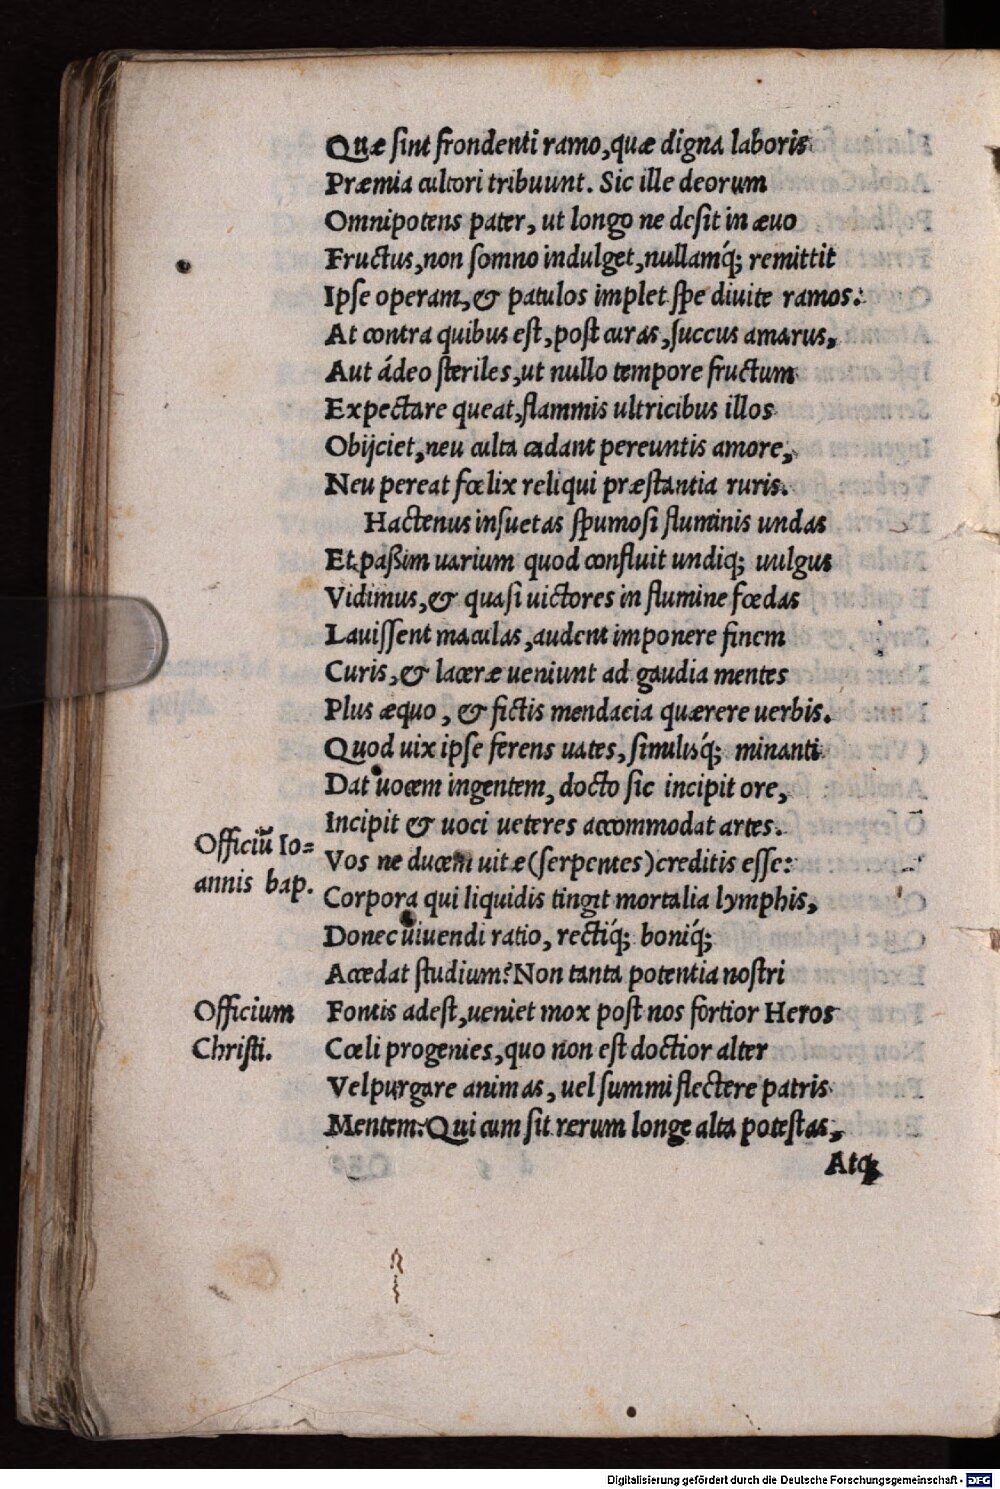 Quæ sint frondenti ramo, quæ digna laboris
Præmia cultori tribuunt. Sic ille deorum
Omnipotens pater, ut longo ne desit in æuo
Fructus, non somno indulget, nullamq́; remittit
Ipse operam, & patulos implet spe diuite ramos:
At contra quibus est, post curas, succus amarus,
Aut ádeo steriles, ut nullo tempore fructum
Expectare queat, flammis ultricibus illos
Obijciet, neu culta cadant pereuntis amore,
Neu pereat fœlix reliqui præstantia ruris.
Hactenus insuetas spumosi fluminis undas
Et paßim uarium quod confluit undiq; uulgus
Vidimus, & quasi uictores in flumine fœdas
Lauissent maculas, audent imponere finem
Curis, & laceræ ueniunt ad gaudia mentes
Plus æquo, & fictis mendacia quærere uerbis.
Quod uix ipse ferens uates, similisq́; minanti
Dat uocem ingentem, docto sic incipit ore,
Incipit & uoci ueteres accommodat artes.
Officiū Io=
annis bap.
Vos ne ducem uitæ (serpentes) creditis esse:
Corpora qui liquidis tingit mortalia lymphis,
Donec uiuendi ratio, rectiq́; boniq́;
Accedat studium? Non tanta potentia nostri
Officium
Christi.
Fontis adest, ueniet mox post nos fortior Heros
Cœli progenies, quo non est doctior alter
Vel purgare animas, uel summi flectere patris
Mentem: Qui cum sit rerum longe alta potestas,
Atq;
Digitalisierung gefördert durch die Deutsche Forschungsgemeinschaft - DFG